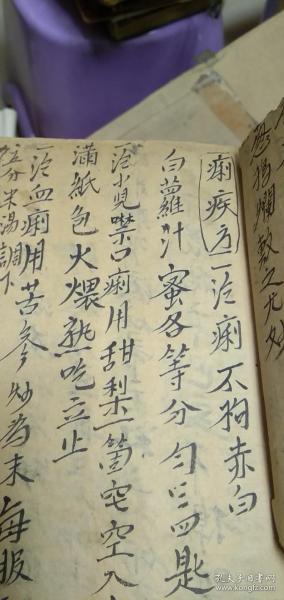 痢疾方 一治痢不拘赤白
白蘿汁蜜各等分勻三四匙
一治小児噤口痢用甜梨一箇空空入
滿紙包火煨熟吃立止
一治血痢用苦參炒為末每服
米湯調下
爛敷之
孔夫子旧书网